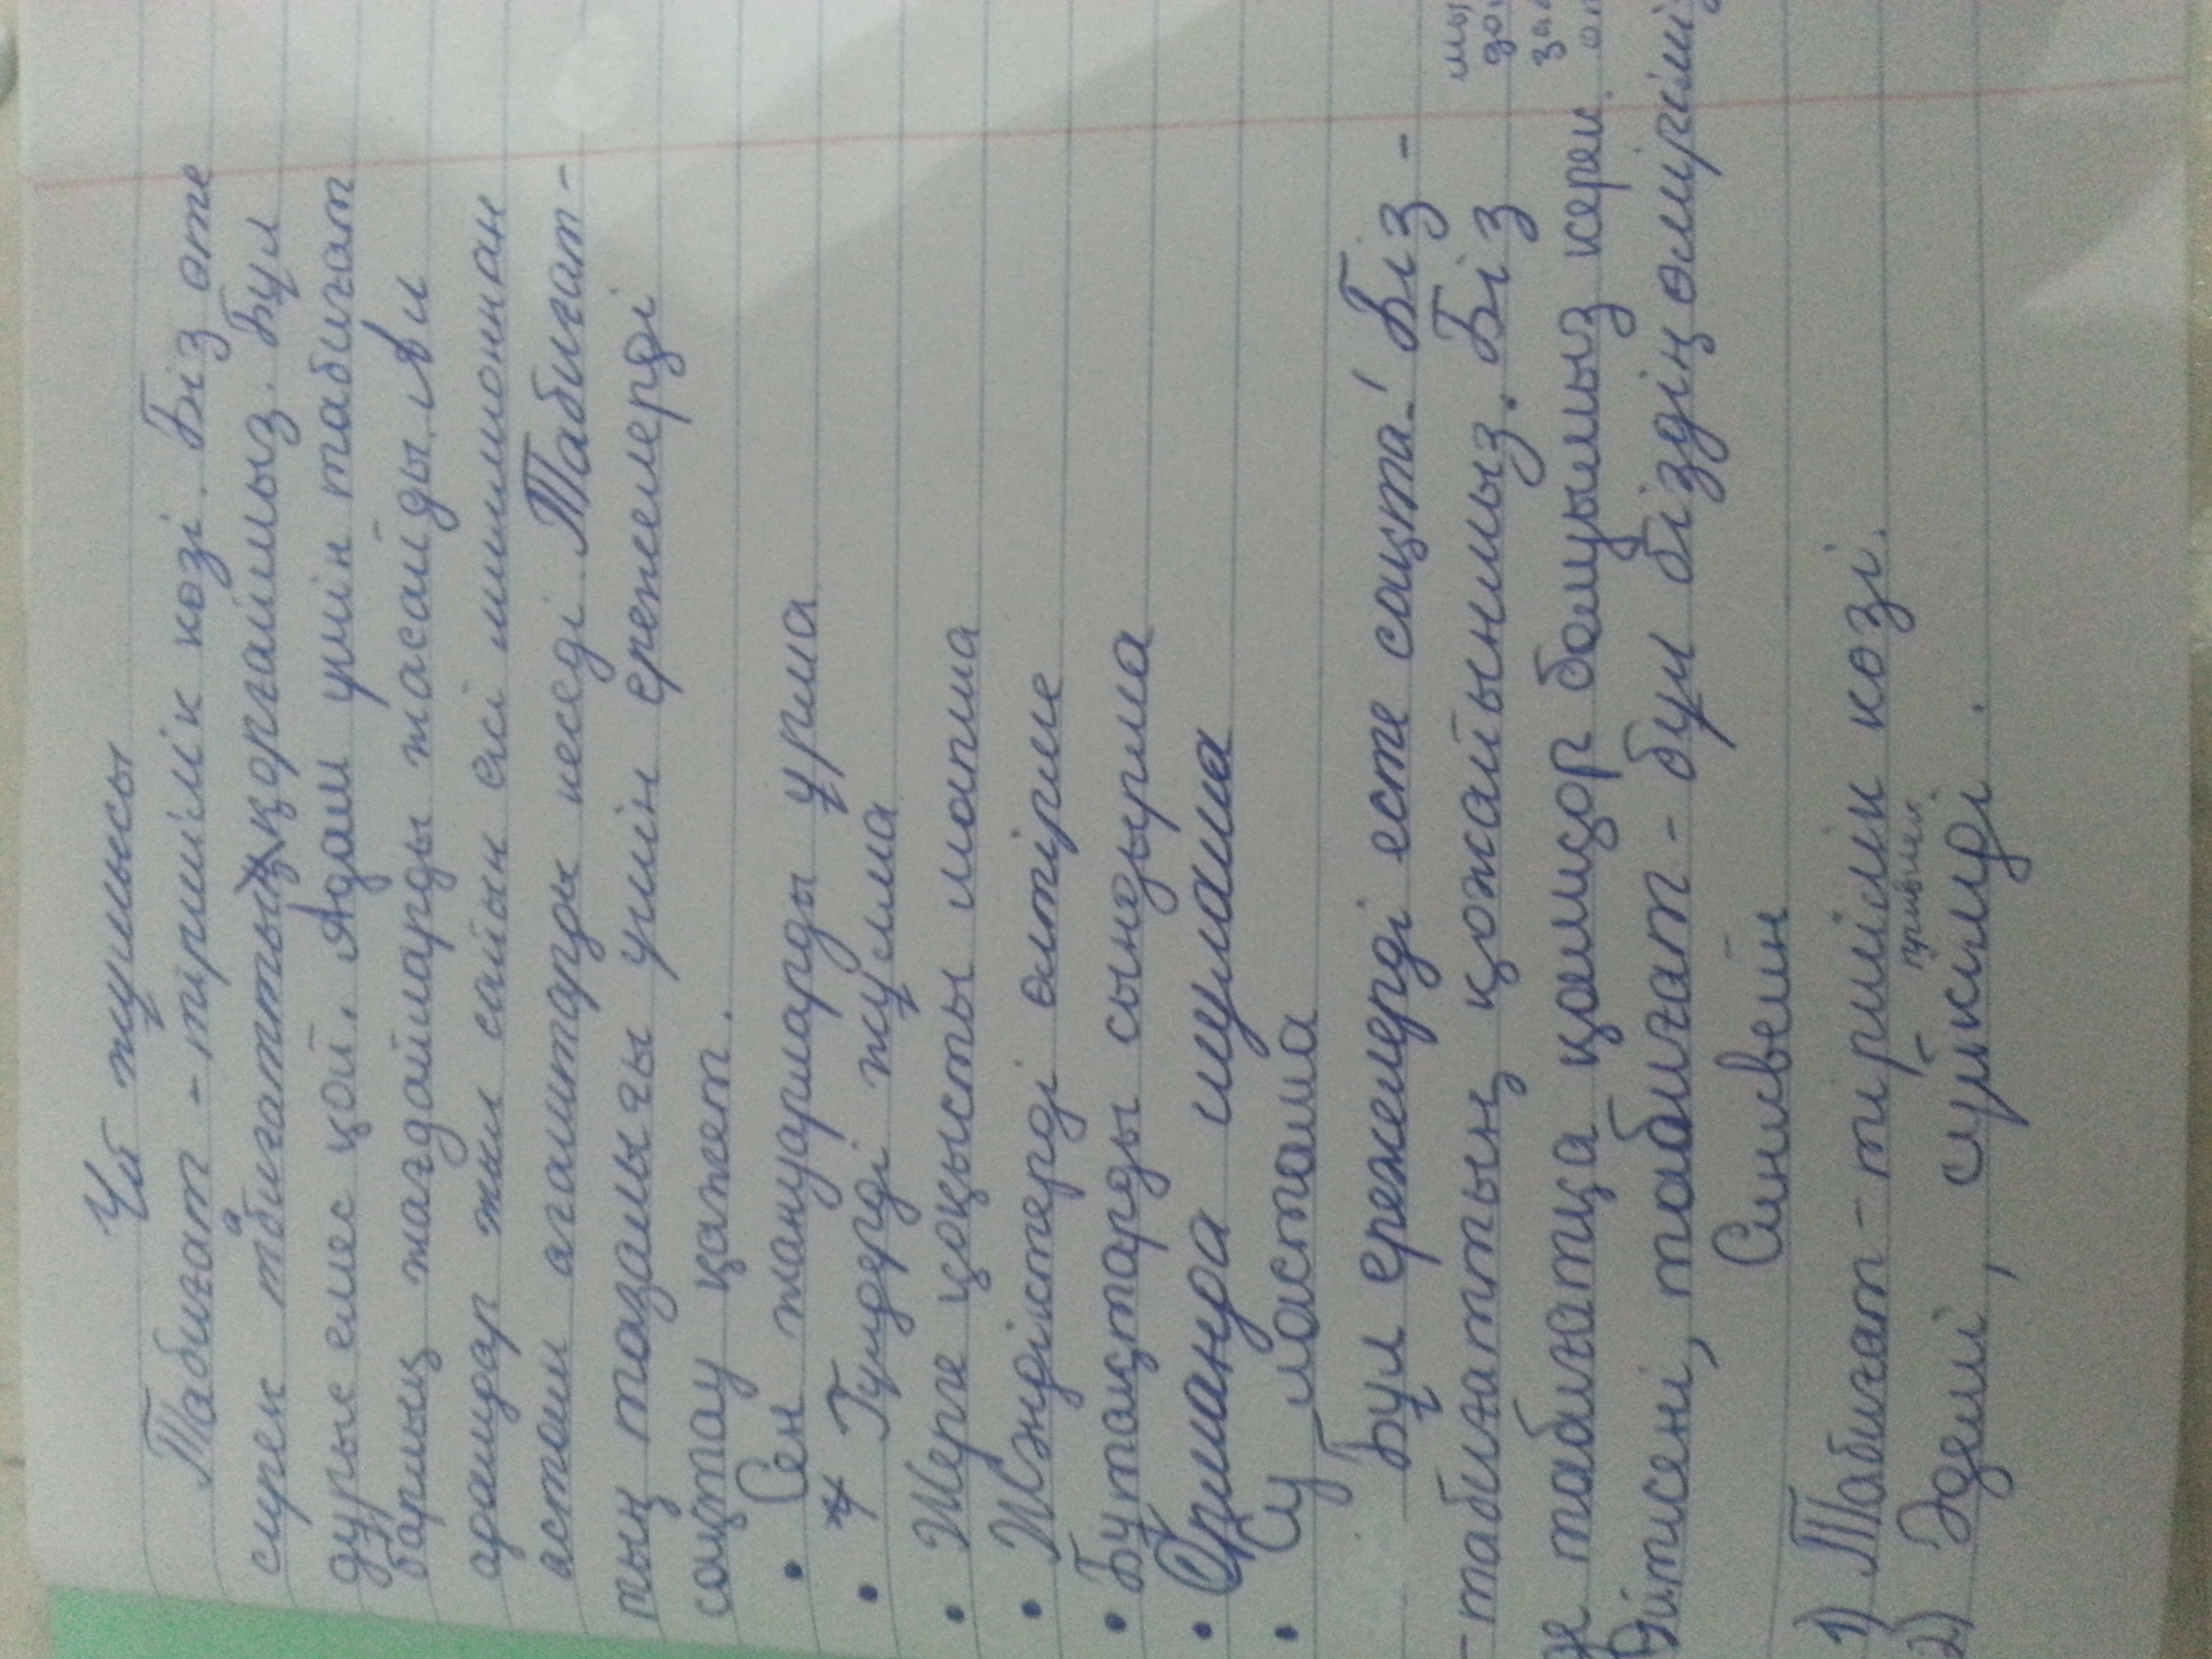 Үй жұмысы
Табиғат - тіршілік көзі. Біз өте
сирек табиғатты қорғаймыз. Бұл
дұрыс емес қой. Адам үшін табиғат
барлық жағдайларды жасайды. Ал
адамдар жыл сайын екі миллионнан
астам ағаштарды кеседі. Табиғат-
тың тазалығы үшін ережелерді
сақтау қажет.
• Сен жануарларды ұрма
• Гүлдерді жұлма
• Жерге қоқысты лақпа
• Жәндіктерді өлтірме
• Бұтақтарды сындырма
• Орманда шулама
• Су ластама
Бұл ережелерді есте сақта! Біз -
- табиғаттың қожайынымыз. Біз
де табиғатқа қамқор болуымыз керек.
Өйткені, табиғат - бұл біздің өміріміз
Синквейн
1) Табиғат - тіршілік көзі.
2) Әдемі, сүйкімді.